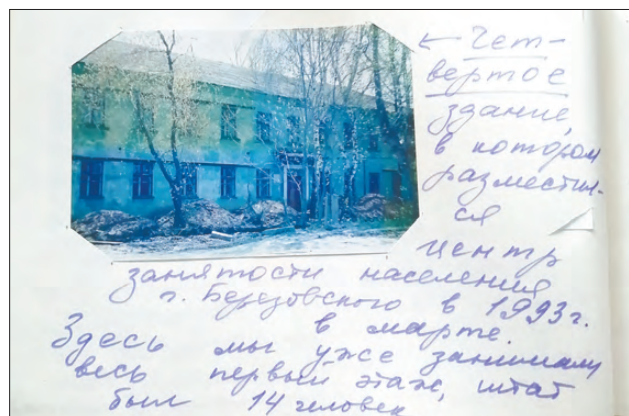 ← Чет-
вертое
здание,
в котором
разместил-
ся
центр
занятости населения
г. Березовского в 1993 г.
в марте.
Здесь мы уже занимали
весь первый этаж, штат
был 14 человек